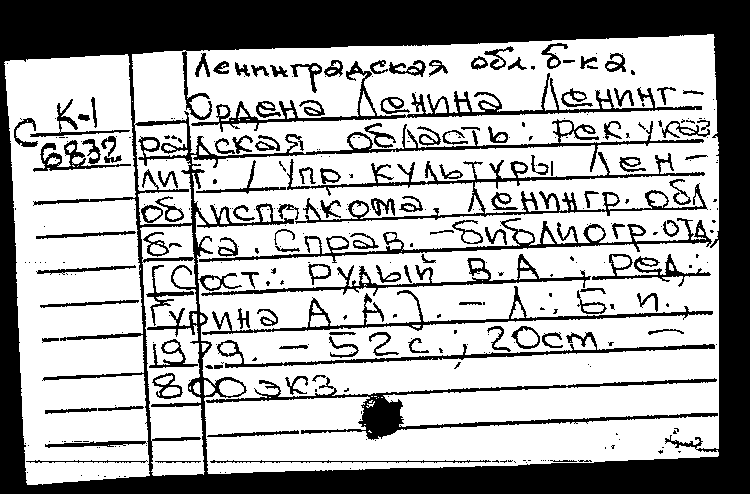 Ленинградская обл. б-ка.
Ордена Ленина Ленинг-
К-1
С 6832
радская область: Рек. указ.
лит. / Упр. культуры Лен-
облисполкома, Ленингр. обл.
б-ка. Справ.-библиогр. отд.;
[Сост.: Рудый В.А.; Ред.:
Гурина А.А.]. – Л.: Б. и.,
1979. – 52 с.; 20 см. –
800 экз.